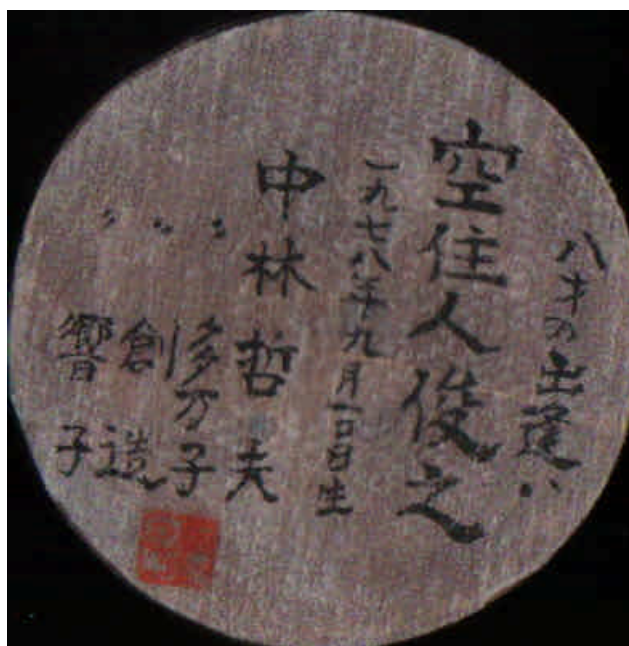 八才の出逢い
空住人俊之
一九七八年九月一日生
中林哲夫
〃 多万子
〃 創造
〃 響子